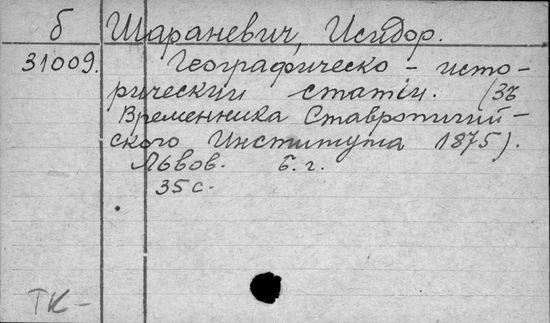 б Шараневич, Исидор.
31009. Географическо-исто-
рически статіи. (зъ
Временника Ставропигий-
ского Института 1875).
Львов. б. г.
35 с.
ТК-